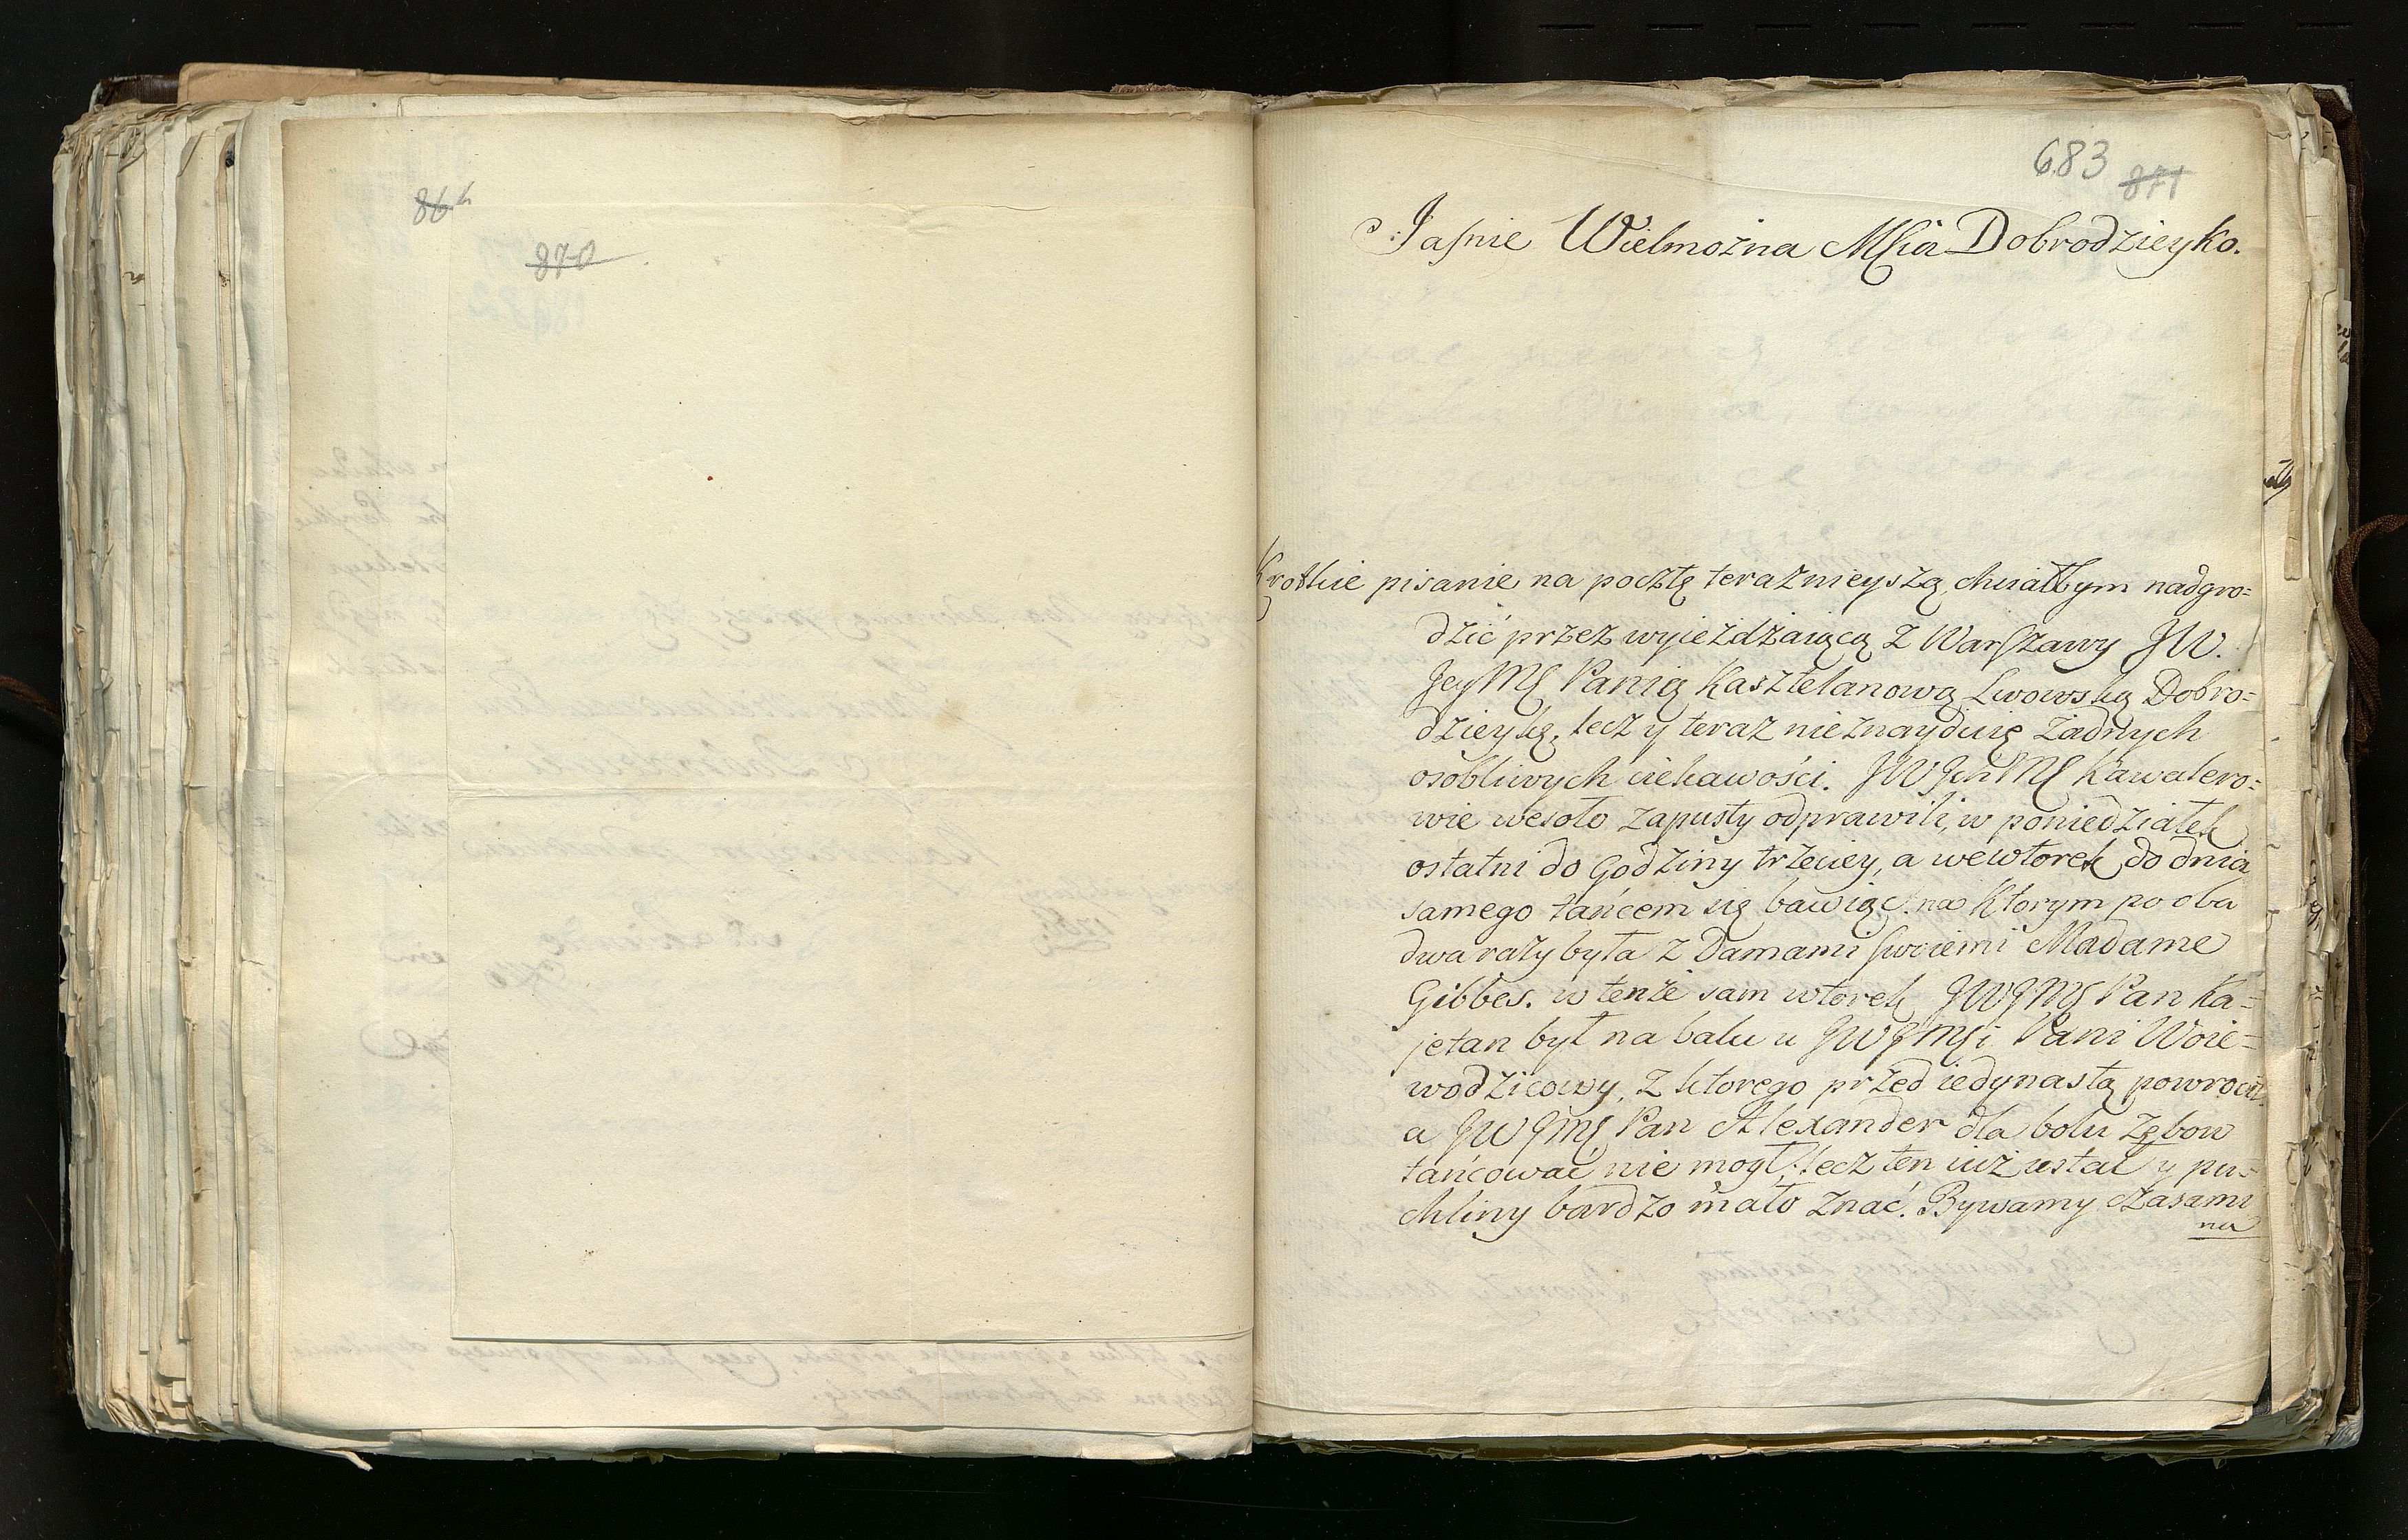 870
683
871
Jaſnie Wielmożna Mſcia Dobrodzieyko.
Krotkie pisanie na pocztę teraznieyszą, chciałbym nadgro=
dzić przez wyieżdżaiącą z Warſzawy JW.
JeyMſ Panią Kasztelanową Lwowską Dobro=
dzieykę, lecz y teraz nieznayduię żadnych
osobliwych ciekawości. JW JchMſ Kawalero=
wie wesoło zapusty odprawili, w poniedziałek
ostatni do Godziny trzeciey, a wewtorek do dnia
samego tańcem się bawiąc. na ktorym po oba
dwa razy była z Damami ſwiemi Madame
Gibbes. w tenże sam wtorek JWJMſ Pan Ka=
jetan był na balu u JWJMſi Pani Woie=
wodzicowy, z ktorego przed iedynastą powrocił.
a JWJMſ Pan Alexander dla bolu zębow
tańcować nie mogł, lecz ten iuż ustał y pu=
chliny bardzo mało znać. Bywamy czasami
na